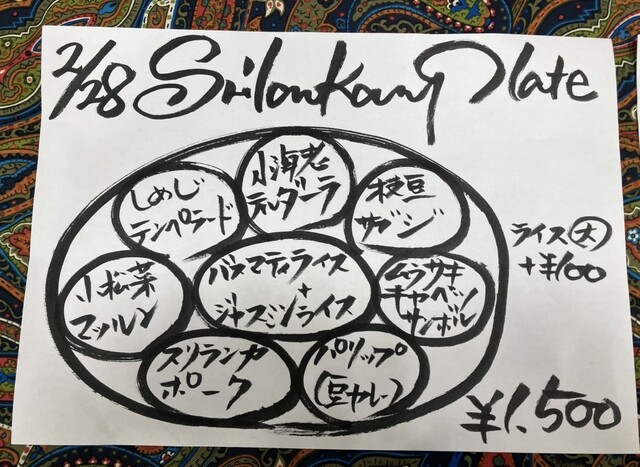 2/28 Srilankan Plate
小海老
テルダーラ
しめじ
テンペラード
枝豆
サブジ
ライス(大)
+¥100
小松菜
マッルン
バスマティライス
+
ジャスミンライス
ムラサキ
キャベツ
サンボル
スリランカ
ポーク
パリップ
(豆カレー)
¥1,500